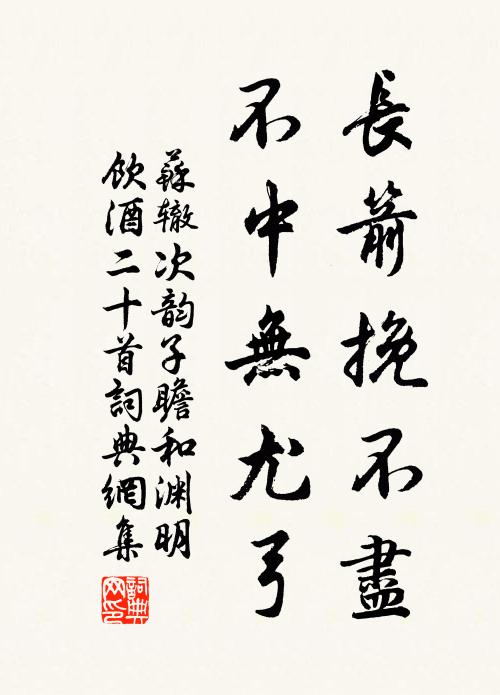 長箭挽不盡
不中無尤弓
蘇轍次韵子瞻和渊明
飲酒二十首詞典網集
詞典
网印